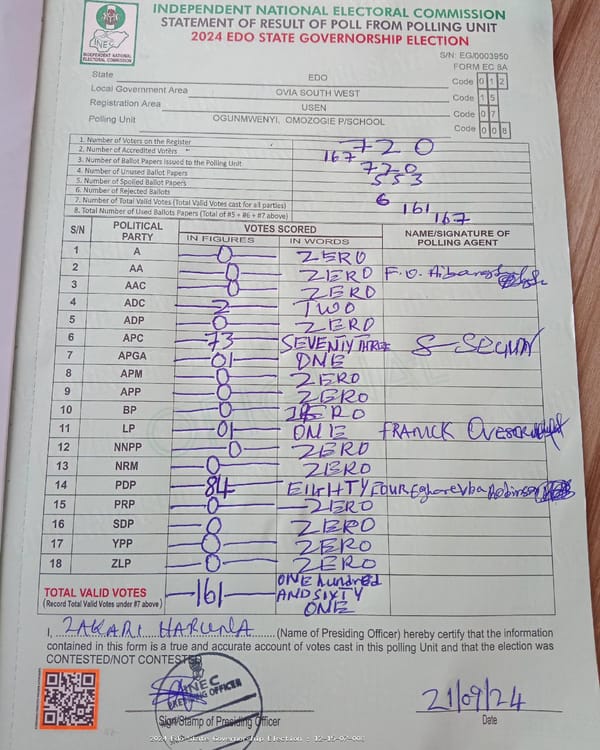 INDEPENDENT NATIONAL ELECTORAL COMMISSION
STATEMENT OF RESULT OF POLL FROM POLLING UNIT
2024 EDO STATE GOVERNORSHIP ELECTION
INEC
INDEPENDENT NATIONAL
ELECTORAL COMMISSION
S/N: EG/0003950
FORM EC 8A
State EDO Code 0 1 2
Local Government Area OVIA SOUTH WEST Code 1 5
Registration Area USEN Code 0 7
Polling Unit OGUNMWENYI, OMOZOGIE P/SCHOOL Code 0 0 8
1. Number of Voters on the Register 720
2. Number of Accredited Voters 167
3. Number of Ballot Papers issued to the Polling Unit 720
4. Number of Unused Ballot Papers 553
5. Number of Spoiled Ballot Papers
6. Number of Rejected Ballots 6
7. Number of Total Valid Votes (Total Valid Votes cast for all parties) 161
8. Total Number of Used Ballots Papers (Total of #5 + #6 + #7 above) 167
S/N POLITICAL PARTY VOTES SCORED NAME/SIGNATURE OF POLLING AGENT
IN FIGURES IN WORDS
1 A 0 ZERO
2 AA 0 ZERO F.O.
3 AAC 0 ZERO
4 ADC 2 TWO
5 ADP 0 ZERO
6 APC 73 SEVENTY THREE
7 APGA 01 ONE
8 APM 0 ZERO
9 APP 0 ZERO
10 BP 0 ZERO
11 LP 01 ONE FRANCK
12 NNPP 0 ZERO
13 NRM 0 ZERO
14 PDP 84 EIGHTY FOUR
15 PRP 0 ZERO
16 SDP 0 ZERO
17 YPP 0 ZERO
18 ZLP 0 ZERO
TOTAL VALID VOTES 161 ONE hundred
(Record Total Valid Votes under #7 above) AND SIXTY
ONE
I, ZAKARI HARUNA (Name of Presiding Officer) hereby certify that the information
contained in this form is a true and accurate account of votes cast in this polling Unit and that the election was
CONTESTED/NOT CONTESTED
INEC
PRESIDING OFFICER
21/09/24
Sign/Stamp of Presiding Officer Date
2024 Edo State Governorship Election : 12-15-07-008